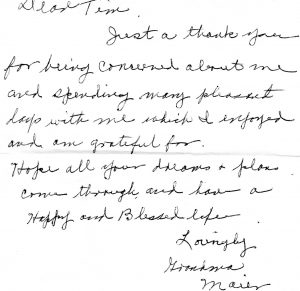 Dear Tim.
Just a thank you
for being concerned about me
and spending many pleasant
days with me which I enjoyed
and am grateful for.
Hope all your dreams + plans
come through, and have a
Happy and Blessed life
Lovingly
Grandma
Maier